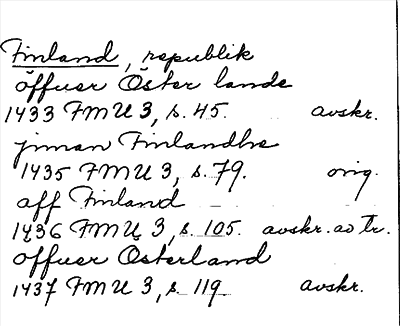 Finland, republik
öffuer Öster lande
1433 FMU 3, s. 45. avskr.
jnnan Finlandhe
1435 FMU 3, s. 79. orig.
aff Finland
1436 FMU 3, s. 105. avskr. av tr.
öffuer Österland
1437 FMU 3, s. 119 avskr.